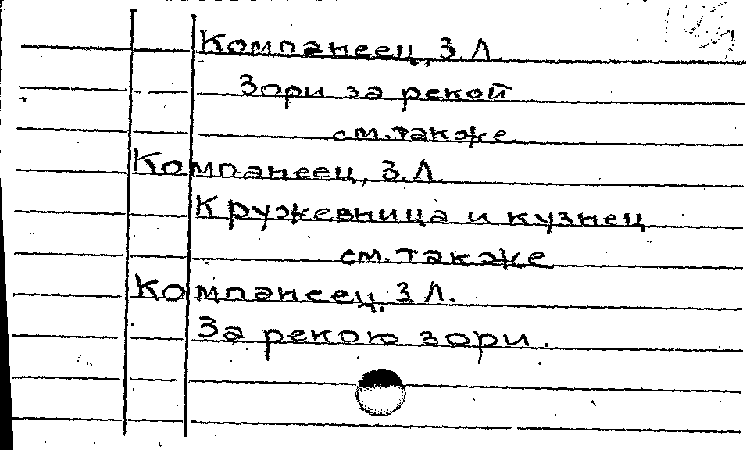 Компанеец, З Л
Зори за рекой
см. также
Компанеец, З. Л.
Кружевница и кузнец
см. также
Компанеец, З Л.
За рекою зори.